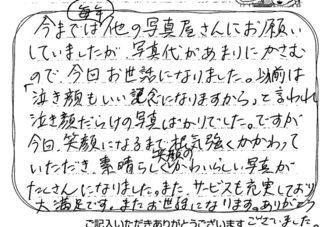 毎年
今までは他の写真屋さんにお願い
していましたが、写真代があまりにかさむ
ので、今回お世話になりました。以前は
「泣き顔もいい記念になりますから」と言われ
泣き顔だらけの写真ばかりでした。ですが
今回、笑顔になるまで根気強くかかわって
いただき、素晴らしく笑顔のかわいらしい写真が
たくさんになりました。また、サービスも充実しており
大満足です。またお世話になります。ありがとう
ございました。
ご記入いただきありがとうございます